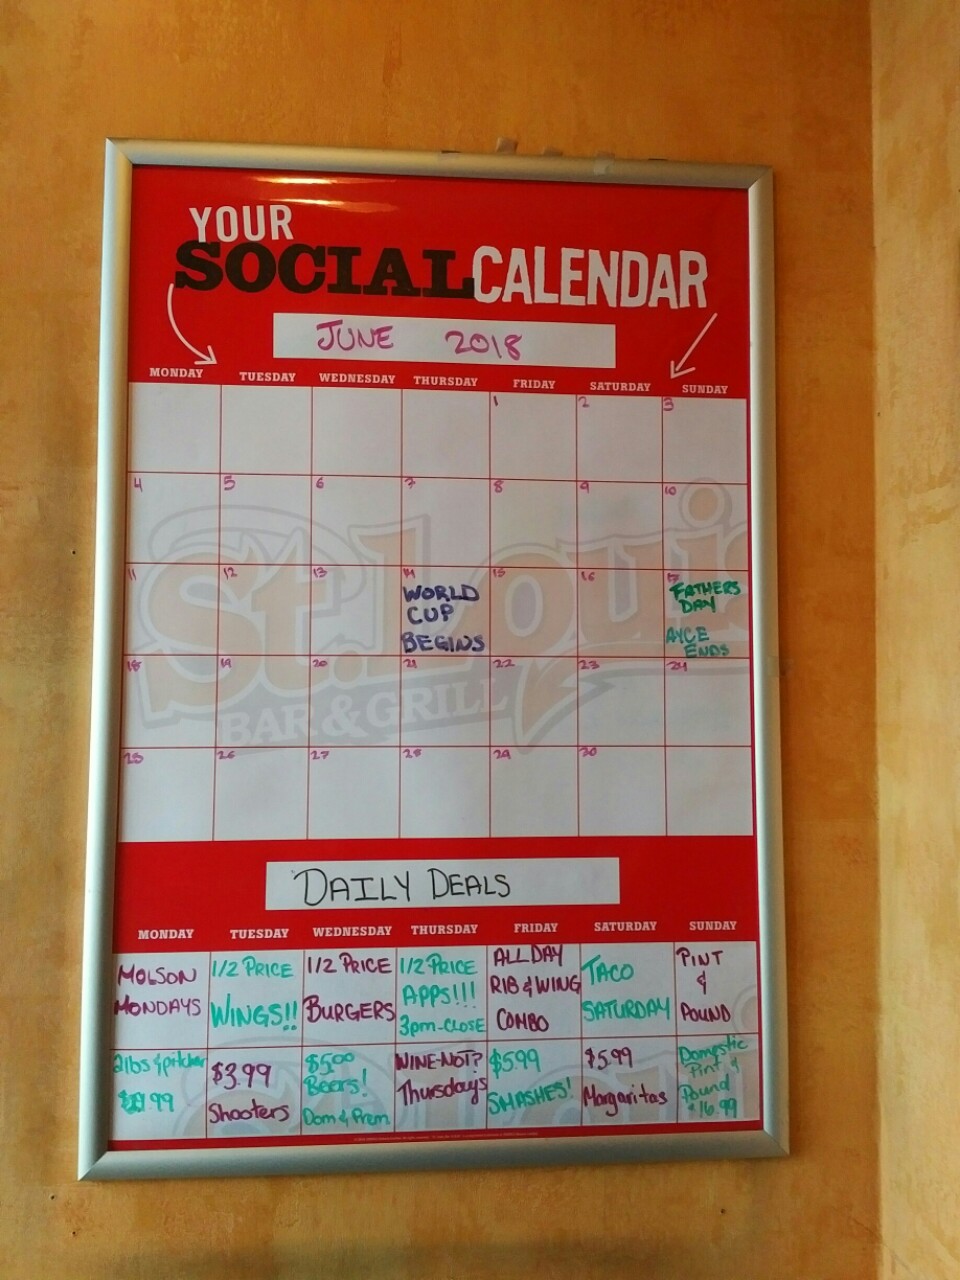 YOUR
SOCIAL CALENDAR
JUNE 2018
MONDAY TUESDAY WEDNESDAY THURSDAY FRIDAY SATURDAY SUNDAY
1 2 3
4 5 6 7 8 9 10
11 12 13 14 15 16 17
WORLD CUP BEGINS
FATHERS DAY
AYCE ENDS
18 19 20 21 22 23 24
25 26 27 28 29 30
St. Louis
BAR & GRILL
DAILY DEALS
MONDAY TUESDAY WEDNESDAY THURSDAY FRIDAY SATURDAY SUNDAY
MOLSON
MONDAYS
1/2 PRICE
WINGS!!
1/2 PRICE
BURGERS
1/2 PRICE
APPS!!!
3pm-CLOSE
ALL DAY
RIB & WING
COMBO
TACO
SATURDAY
PINT
&
POUND
2lbs & pitcher
$3.99
Shooters
$5.00
Beers!
Dom & Prem
WINE-NOT?
Thursdays
$5.99
SMASHES!
$5.99
Margaritas
Domestic
Pint &
Pound
$16.99